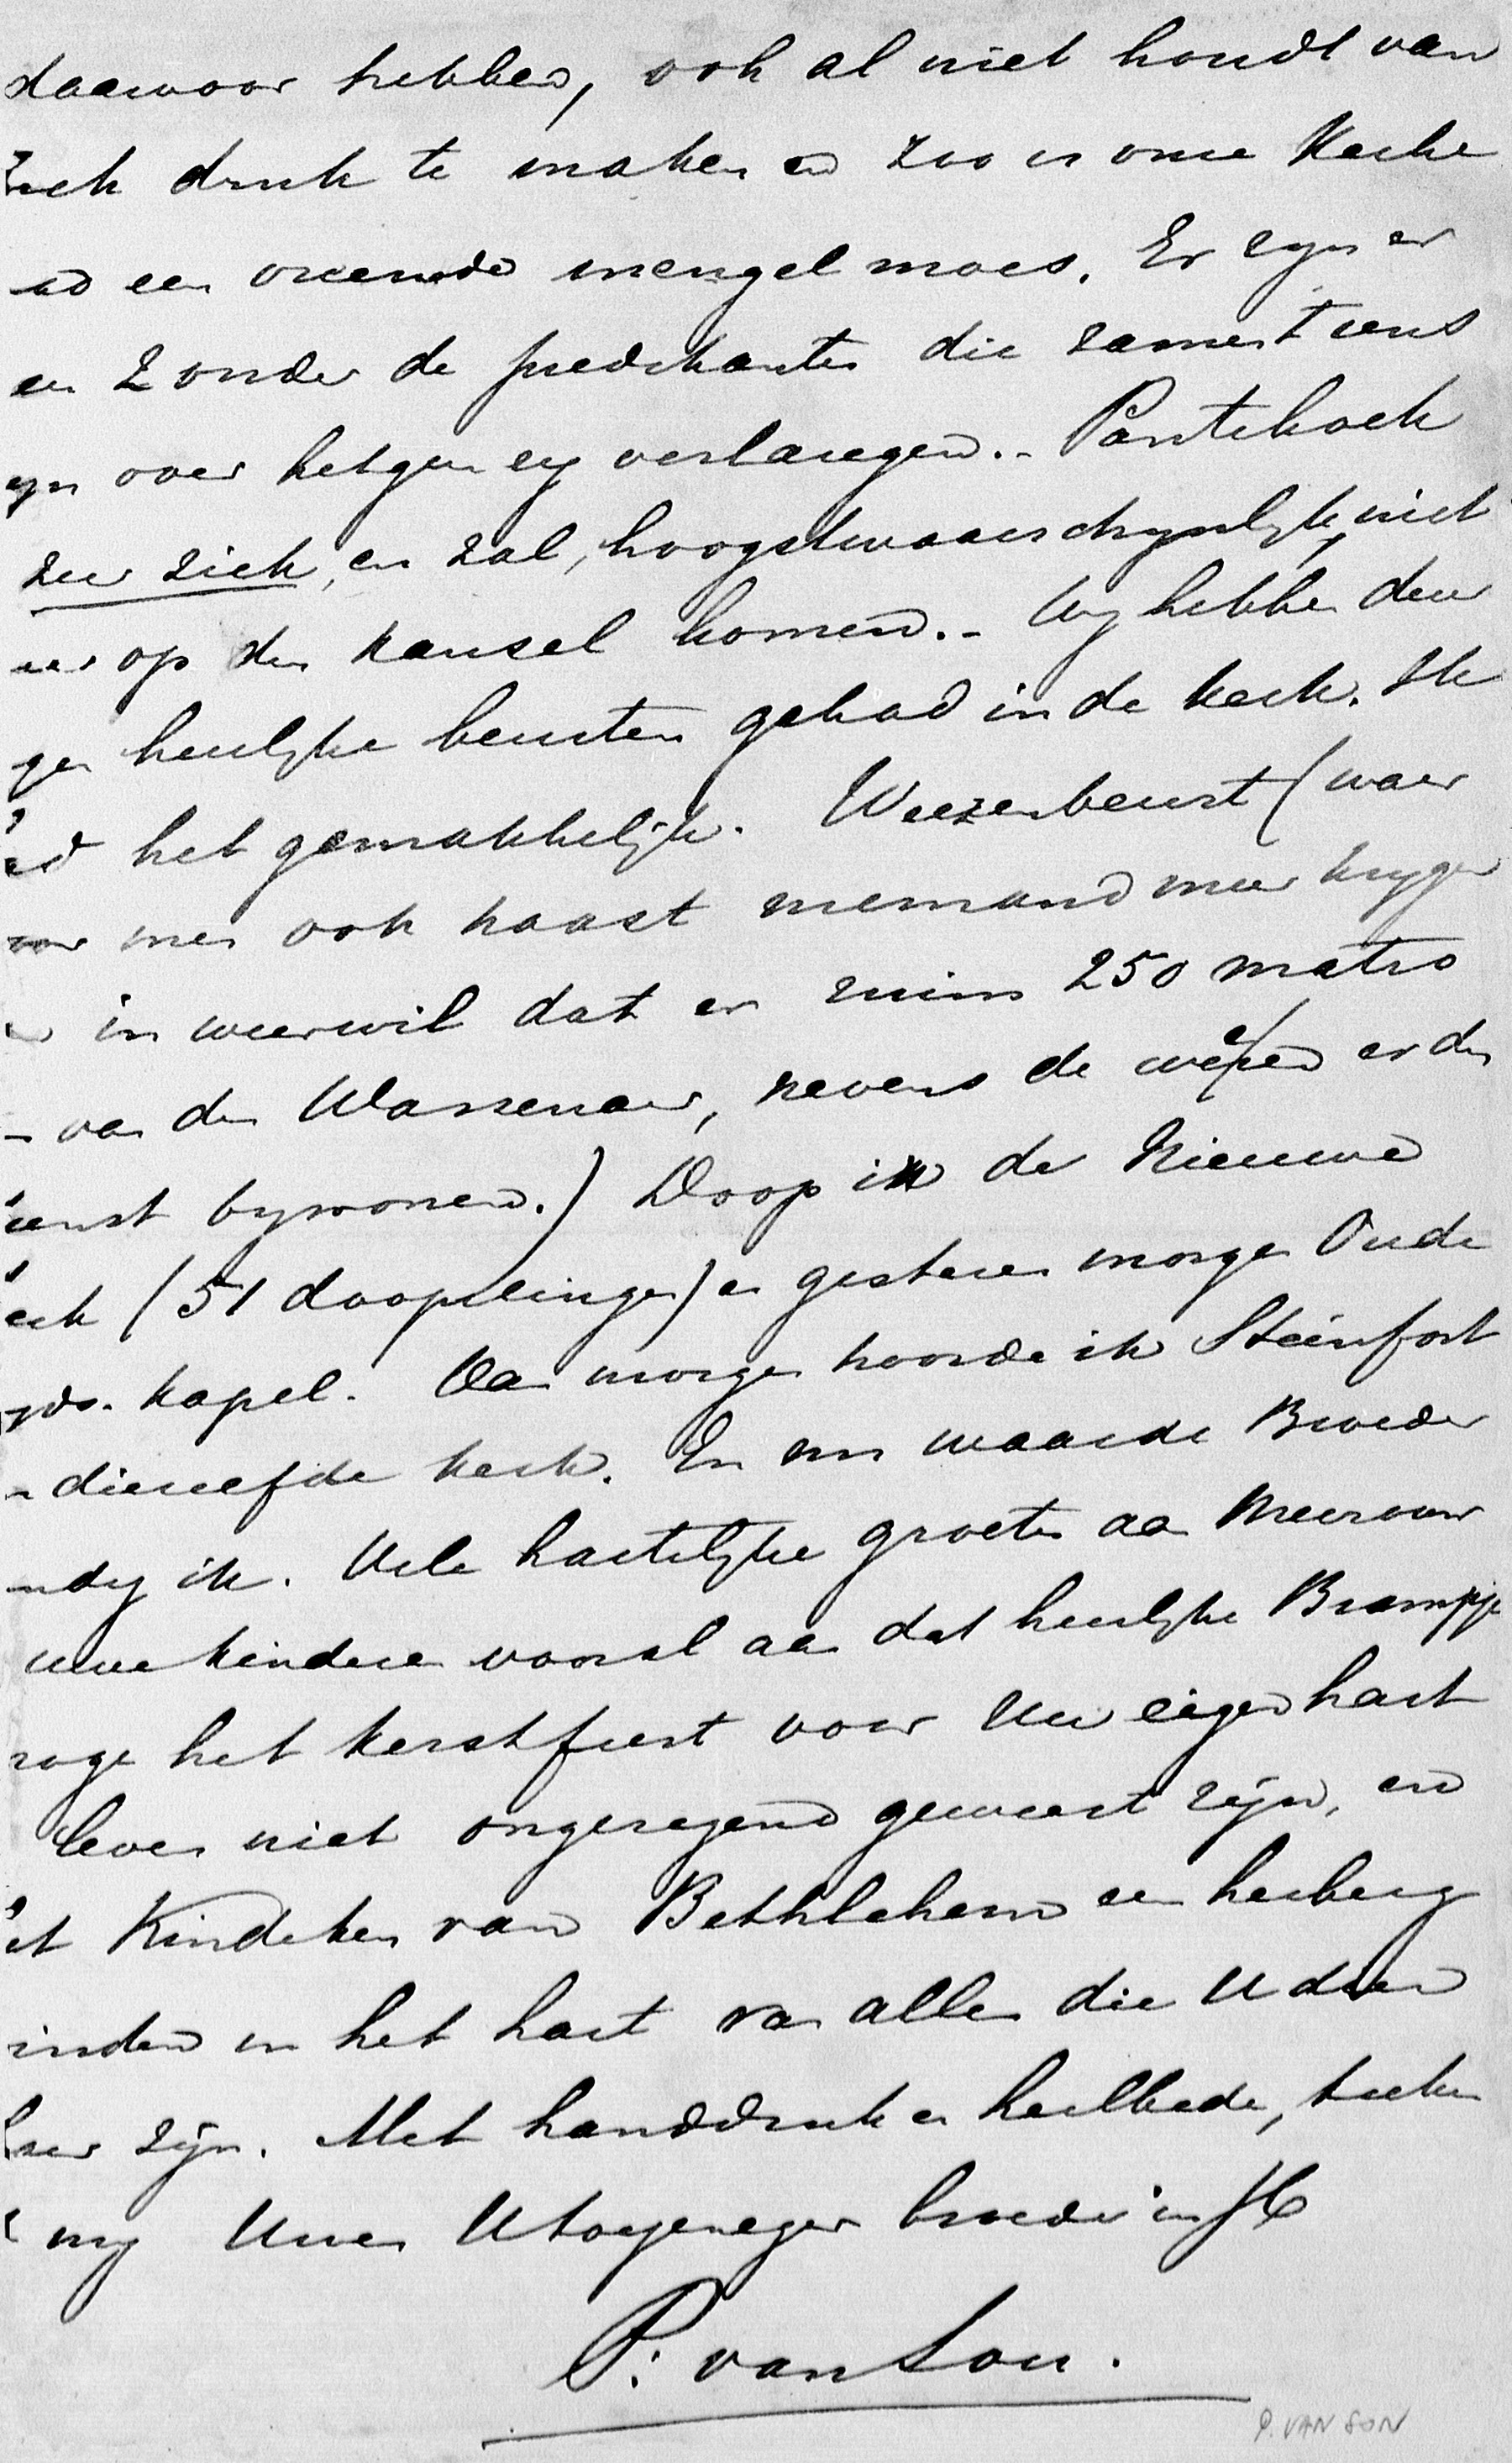 daarvoor hebben, ook al niet houdt van
zich druk te maken en zoo is onze Kerke
een vreemde mengelmoes. Er zyn er
en zonder de predikanten die 't eens
zyn over hetgeen zy verlangen.. Pantekoek
zeer ziek, en zal, hoogstwaarschynlyk, niet
meer op den kansel komen.. Wy hebben deze
gen heerlyke beurten gehad in de Kerk. Ik
had het gemakkelijk. Weezenbeurt (waar
voor men ook haast niemand meer krygen
in weerwil dat er ruim 250 matro
van den Wassenaar, nevens de wezen er den
ienst bywonen.) Doop in de Nieuwe
erk (51 doopelingen) en gisteren morgen Oude
yds. kapel. Van morgen hoorde ik Steinfort
in diezelfde kerk. En nu waarde Broeder
eindig ik. Vele hartelyke groeten aan Mevrouw
uwe kinderen vooral aan dat heerlyke Brampje
moge het kerstfeest voor Uw eigen hart
leven niet ongezegend geweest zijn, en
het Kindeken van Bethlehem een herberg
vinden in het hart van allen die U dier
baar zijn. Met handdruk en heilbede, teeken
ik my Uwen Utoegenegen broeder in
P. van Son.
P. VAN SON